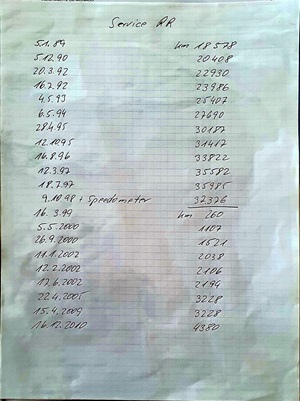 Service RR
5.1.89 km 18578
5.12.90 20408
20.3.92 22930
16.7.92 23986
4.5.93 25407
6.5.94 27690
28.4.95 30187
12.10.95 31417
16.8.96 33822
12.3.97 35582
18.7.97 35985
9.10.98 + Speedometer 37376
16.3.99 km 260
5.5.2000 1107
26.9.2000 1521
11.1.2002 2038
12.2.2002 2106
17.6.2002 2194
22.4.2005 3228
15.4.2009 3228
16.12.2010 4380